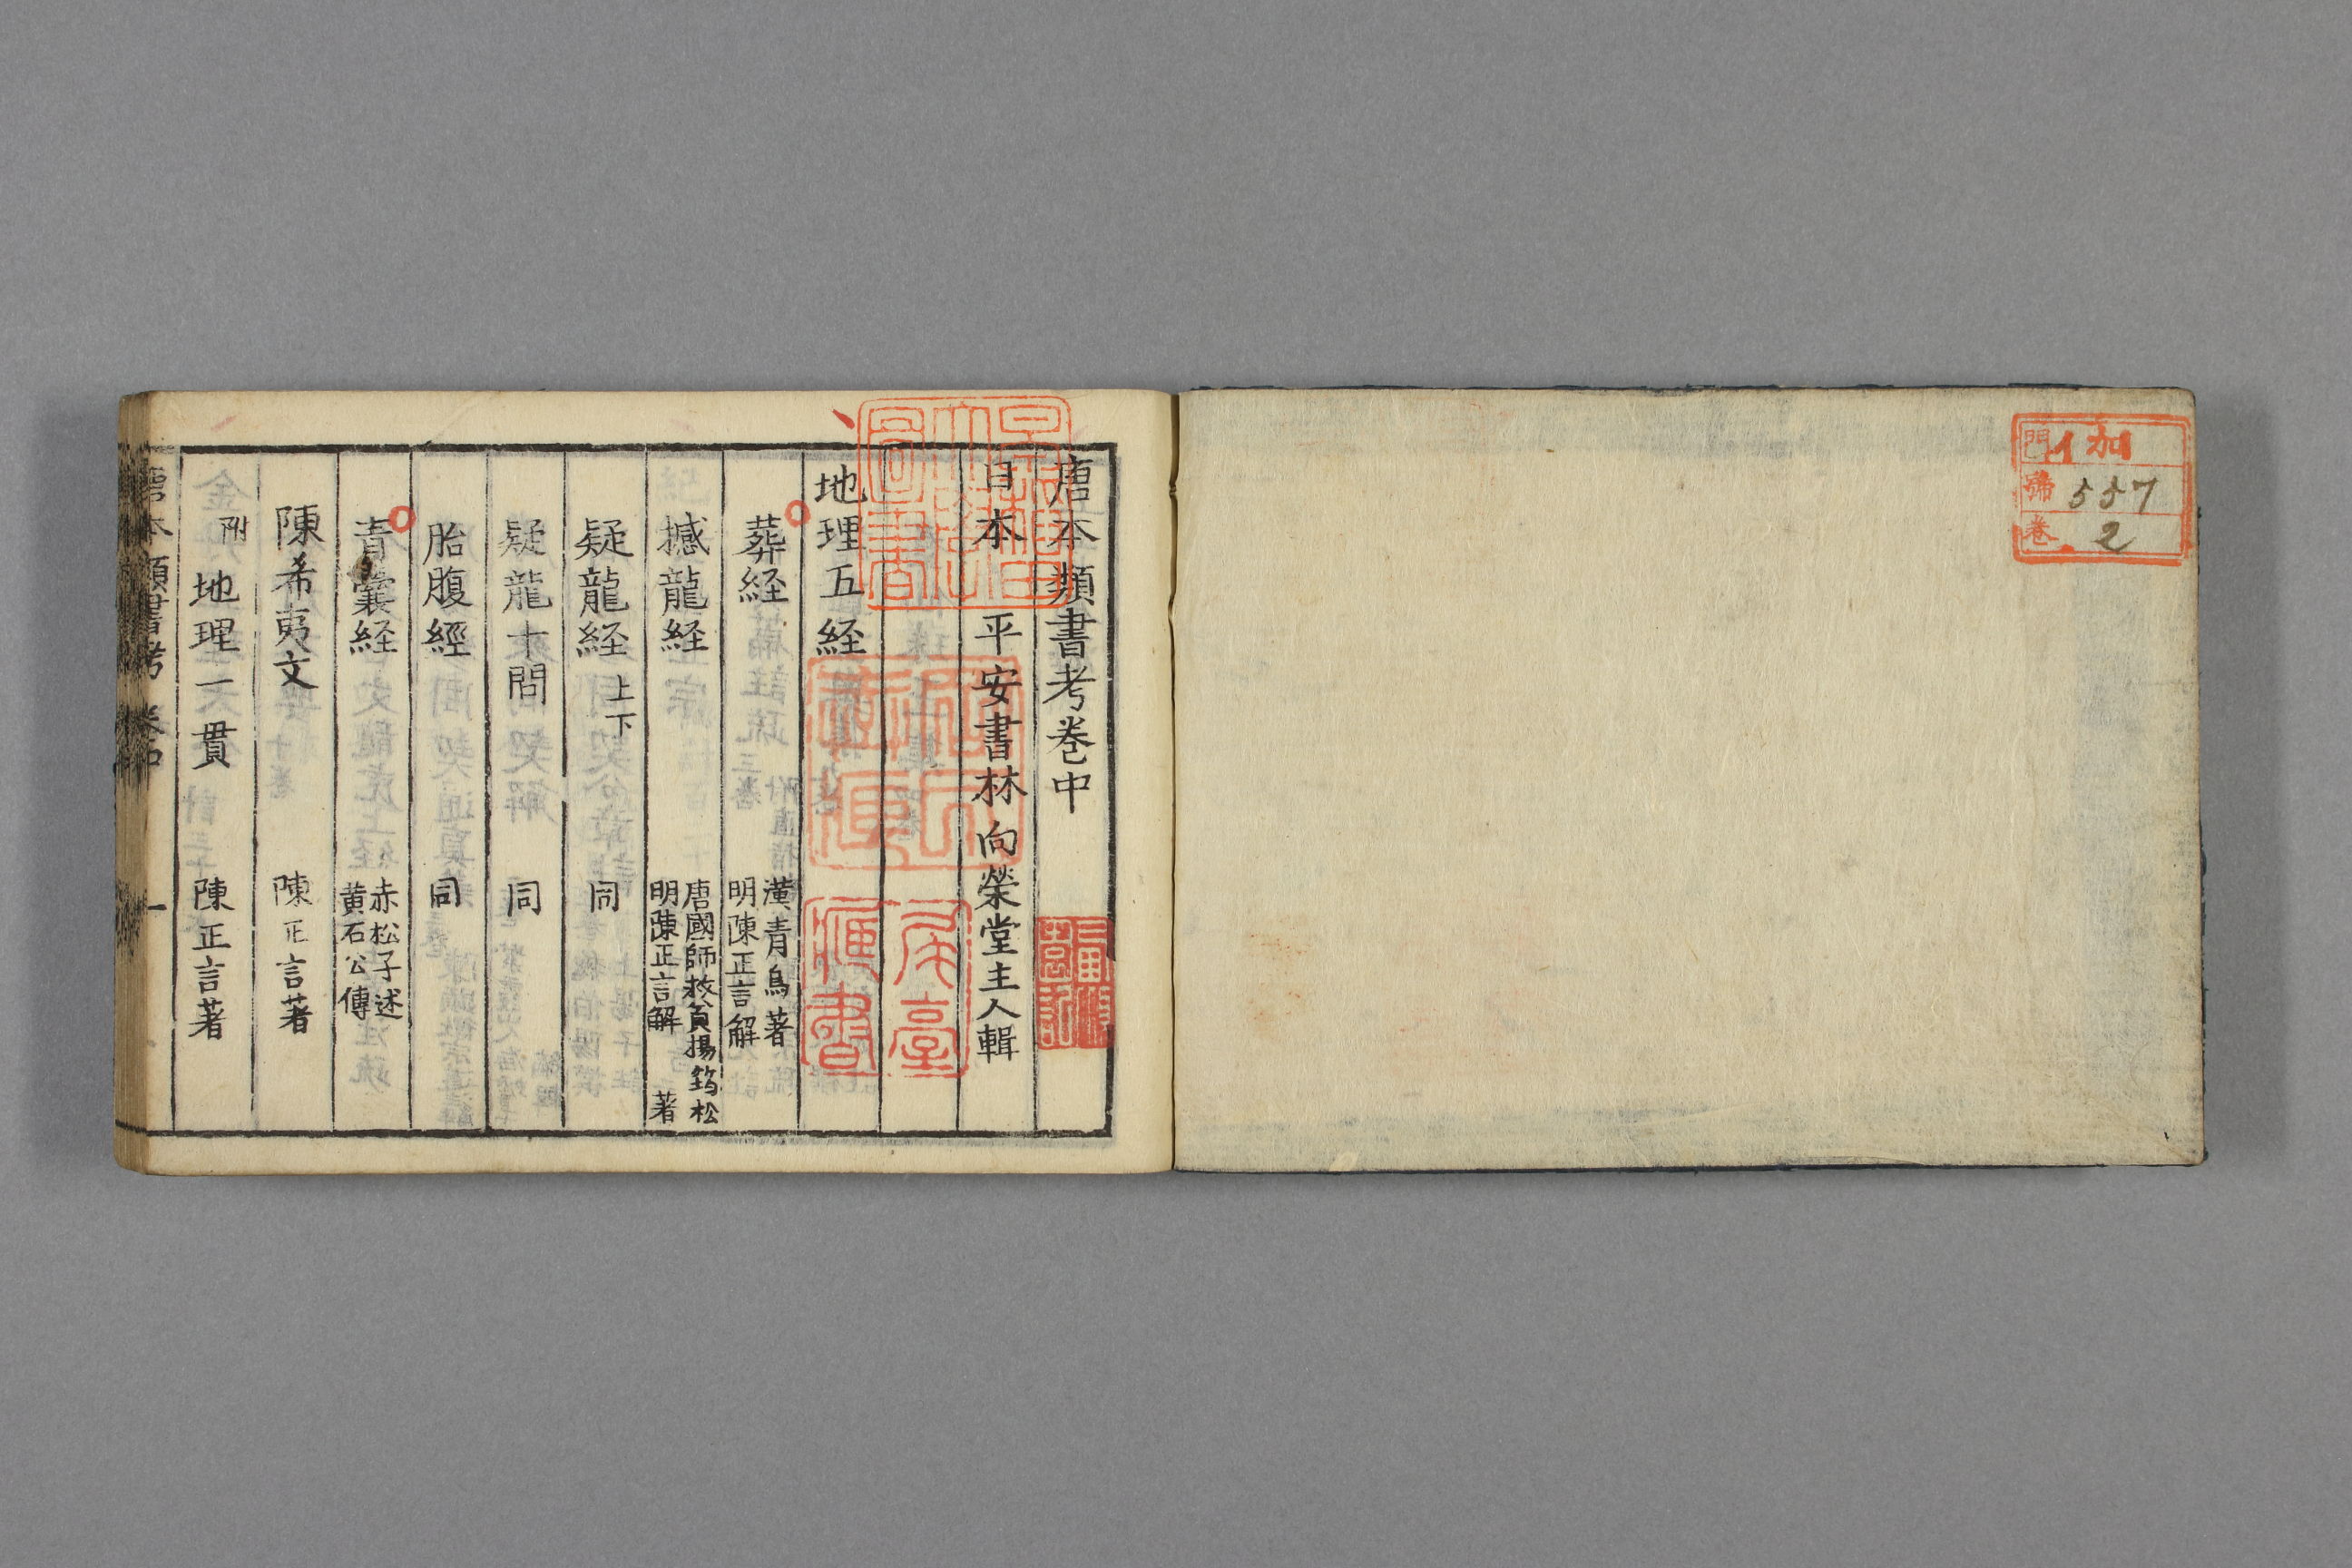 門 イ加
號 557
卷 2
唐本類書考卷中
日本 平安書林 向榮堂主人輯
地理五経
葬経 漢青烏著 明陳正言解
撼龍経 唐國師救貧揚筠松著 明陳正言解
疑龍経 上下 同
疑龍十問 同
胎腹經 同
青囊経 赤松子述 黄石公傳
陳希夷文 陳正言著
附 地理一貫 陳正言著
唐本類書考 卷中 一